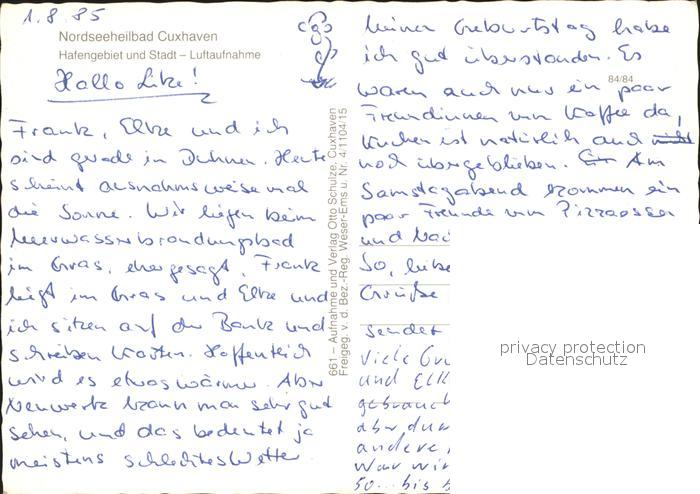 1.8.85
Nordseeheilbad Cuxhaven
Hafengebiet und Stadt – Luftaufnahme
Hallo Like!
Frank, Elke und ich
sind gerade in Duhnen. Heute
scheint ausnahmsweise mal
die Sonne. Wir liegen beim
Meerwasserbrandungsbad
im Gras, eher gesagt, Frank
liegt im Gras und Elke und
ich sitzen auf der Bank und
schreiben Karten. Hoffentlich
wird es etwas wärmer. Aber
Neuwerk kann man sehr gut
sehen, und das bedeutet ja
meistens schlechtes Wetter.
661 – Aufnahme und Verlag Otto Schulze, Cuxhaven
Freigeg. v. d. Bez.-Reg. Weser-Ems u. Nr. 4/1104/15
84/84
Meinen Geburtstag habe
ich gut überstanden. Es
waren auch nur ein paar
Freundinnen zum Kaffee da,
Kuchen ist natürlich auch
noch übergeblieben. Am
Samstagabend kommen ein
paar Freunde zum Pizzaessen
und
So, liebe
Grüße
sendet
Viele
und
gebrauch
aber
andere,
War wir
50... bis
privacy protection
Datenschutz